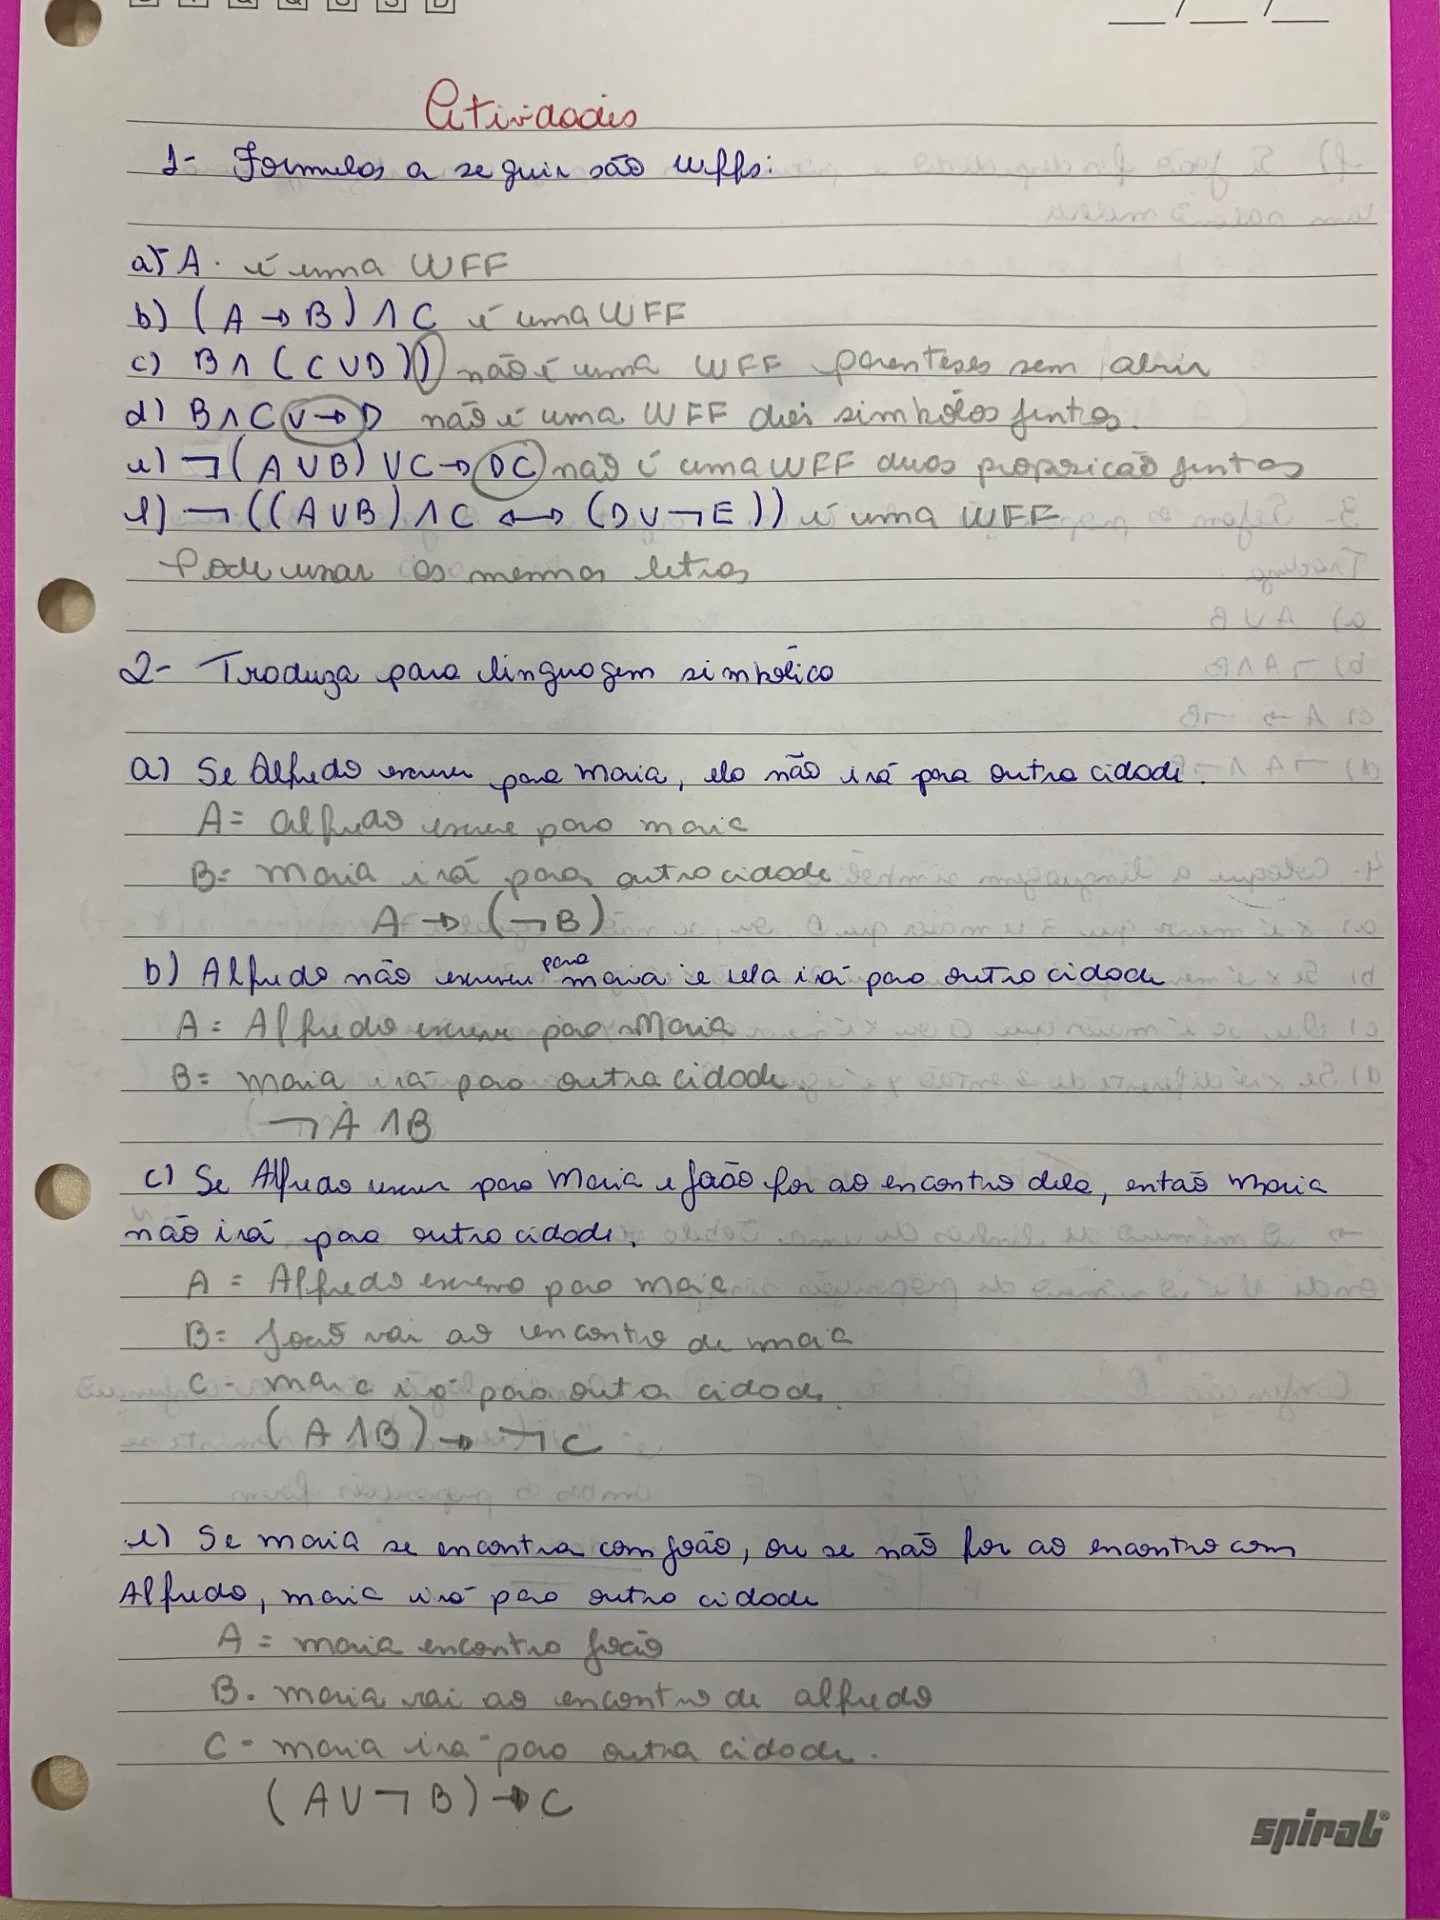 Atividades
1- Formulas a seguir são wffs:
a) A. é uma WFF
b) (A → B) ∧ C é uma WFF
c) B ∧ (C ∨ D)) não é uma WFF parenteses sem abrir
d) B ∧ C ∨ → D não é uma WFF dois simbolos juntos.
e) ¬(A ∨ B) ∨ C → DC não é uma WFF duas proposicão juntas
f) ¬((A ∨ B) ∧ C ↔ (D ∨ ¬E)) é uma WFF
Pode usar as mesmas letras
2- Traduza para linguagem simbólica
a) Se Alfredo escrever para Maria, ela não irá para outra cidade.
A = Alfredo escreve para maria
B = Maria irá para outra cidade
A → (¬B)
b) Alfredo não escreveu para maria e ela irá para outra cidade
A = Alfredo escreve para Maria
B = Maria irá para outra cidade
¬A ∧ B
c) Se Alfredo escrever para Maria e João for ao encontro dela, então Maria
não irá para outra cidade.
A = Alfredo escreve para maria
B = João vai ao encontro de maria
C - maria irá para outra cidade.
(A ∧ B) → ¬C
e) Se maria se encontra com João, ou se não for ao encontro com
Alfredo, maria irá para outra cidade
A = maria encontra João
B. maria vai ao encontro de alfredo
C - maria irá para outra cidade.
(A ∨ ¬B) → C
spiral®